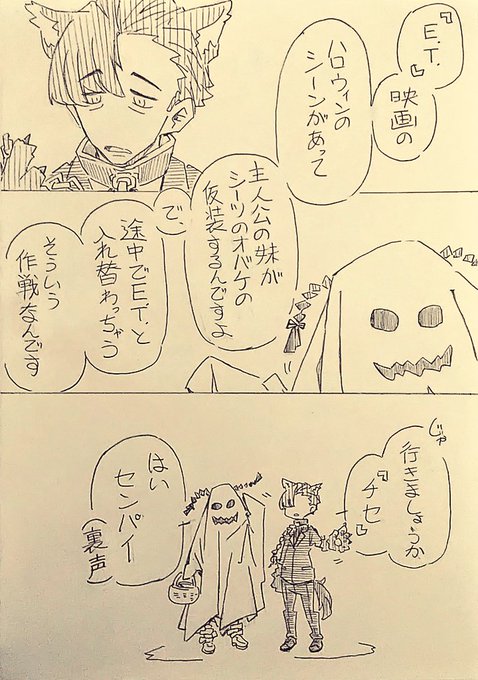 『E.T.』
映画の
ハロウィンの
シーンがあって
主人公の妹が
シーツのオバケの
仮装するんですよ
で、
途中でE.T.と
入れ替わっちゃう
そういう
作戦なんです
じゃ
行きましょうか
『チセ』
はい
センパイ
(裏声)